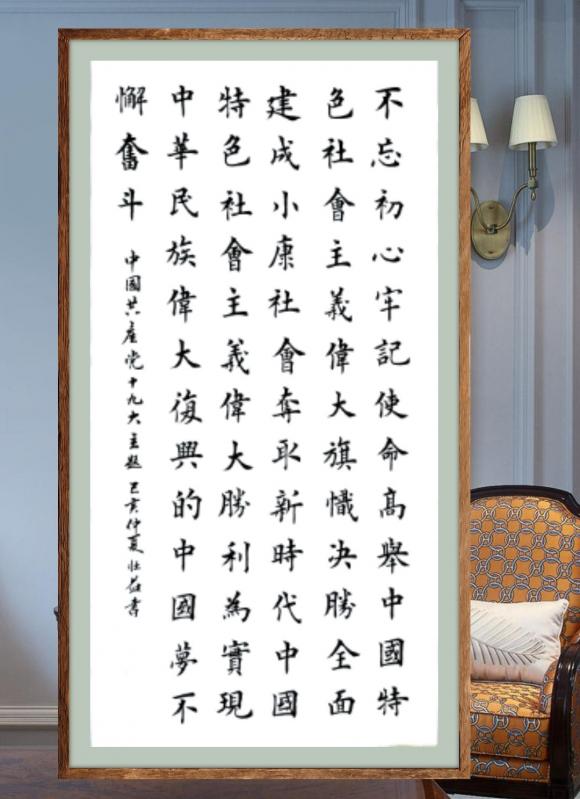 不忘初心牢記使命髙舉中國特
色社會主義偉大旗幟决勝全面
建成小康社會奪取新時代中國
特色社會主義偉大勝利為實現
中華民族偉大復興的中國夢不
懈奮斗
中國共產党十九大主题己亥仲夏書